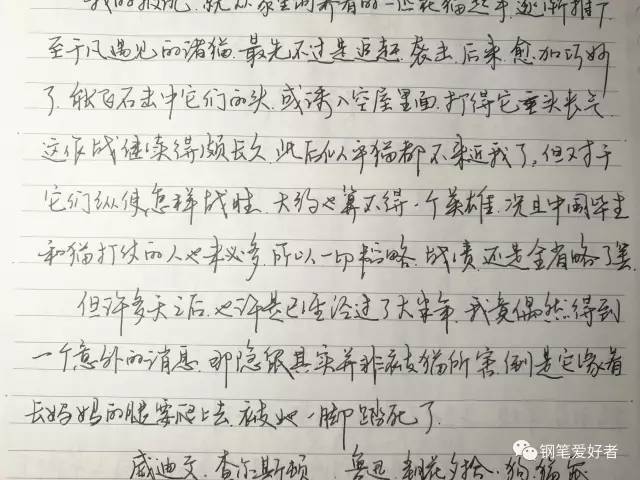 我的报仇,就从家里饲养着的一匹花猫起手,逐渐推广
至于凡遇见的诸猫.最先不过是追赶,袭击,后来,愈加巧妙
了.能飞石击中它们的头,或诱入空屋里面,打得它垂头丧气.
这作战继续得颇长久,此后似乎猫都不来近我了.但对于
它们纵使怎样战胜,大约也算不得一个英雄,况且中国毕生
和猫打仗的人也未必多,所以一切韬略,战绩,还是全省略了罢.
但许多天之后,也许是已经经过了大半年,我竟偶然得到
一个意外的消息,那隐鼠其实并非被猫所害,倒是它缘着
长妈妈的腿要爬上去,被她一脚踏死了.
威迪文.查尔斯顿 鲁迅.朝花夕拾.狗.猫.鼠
钢笔爱好者